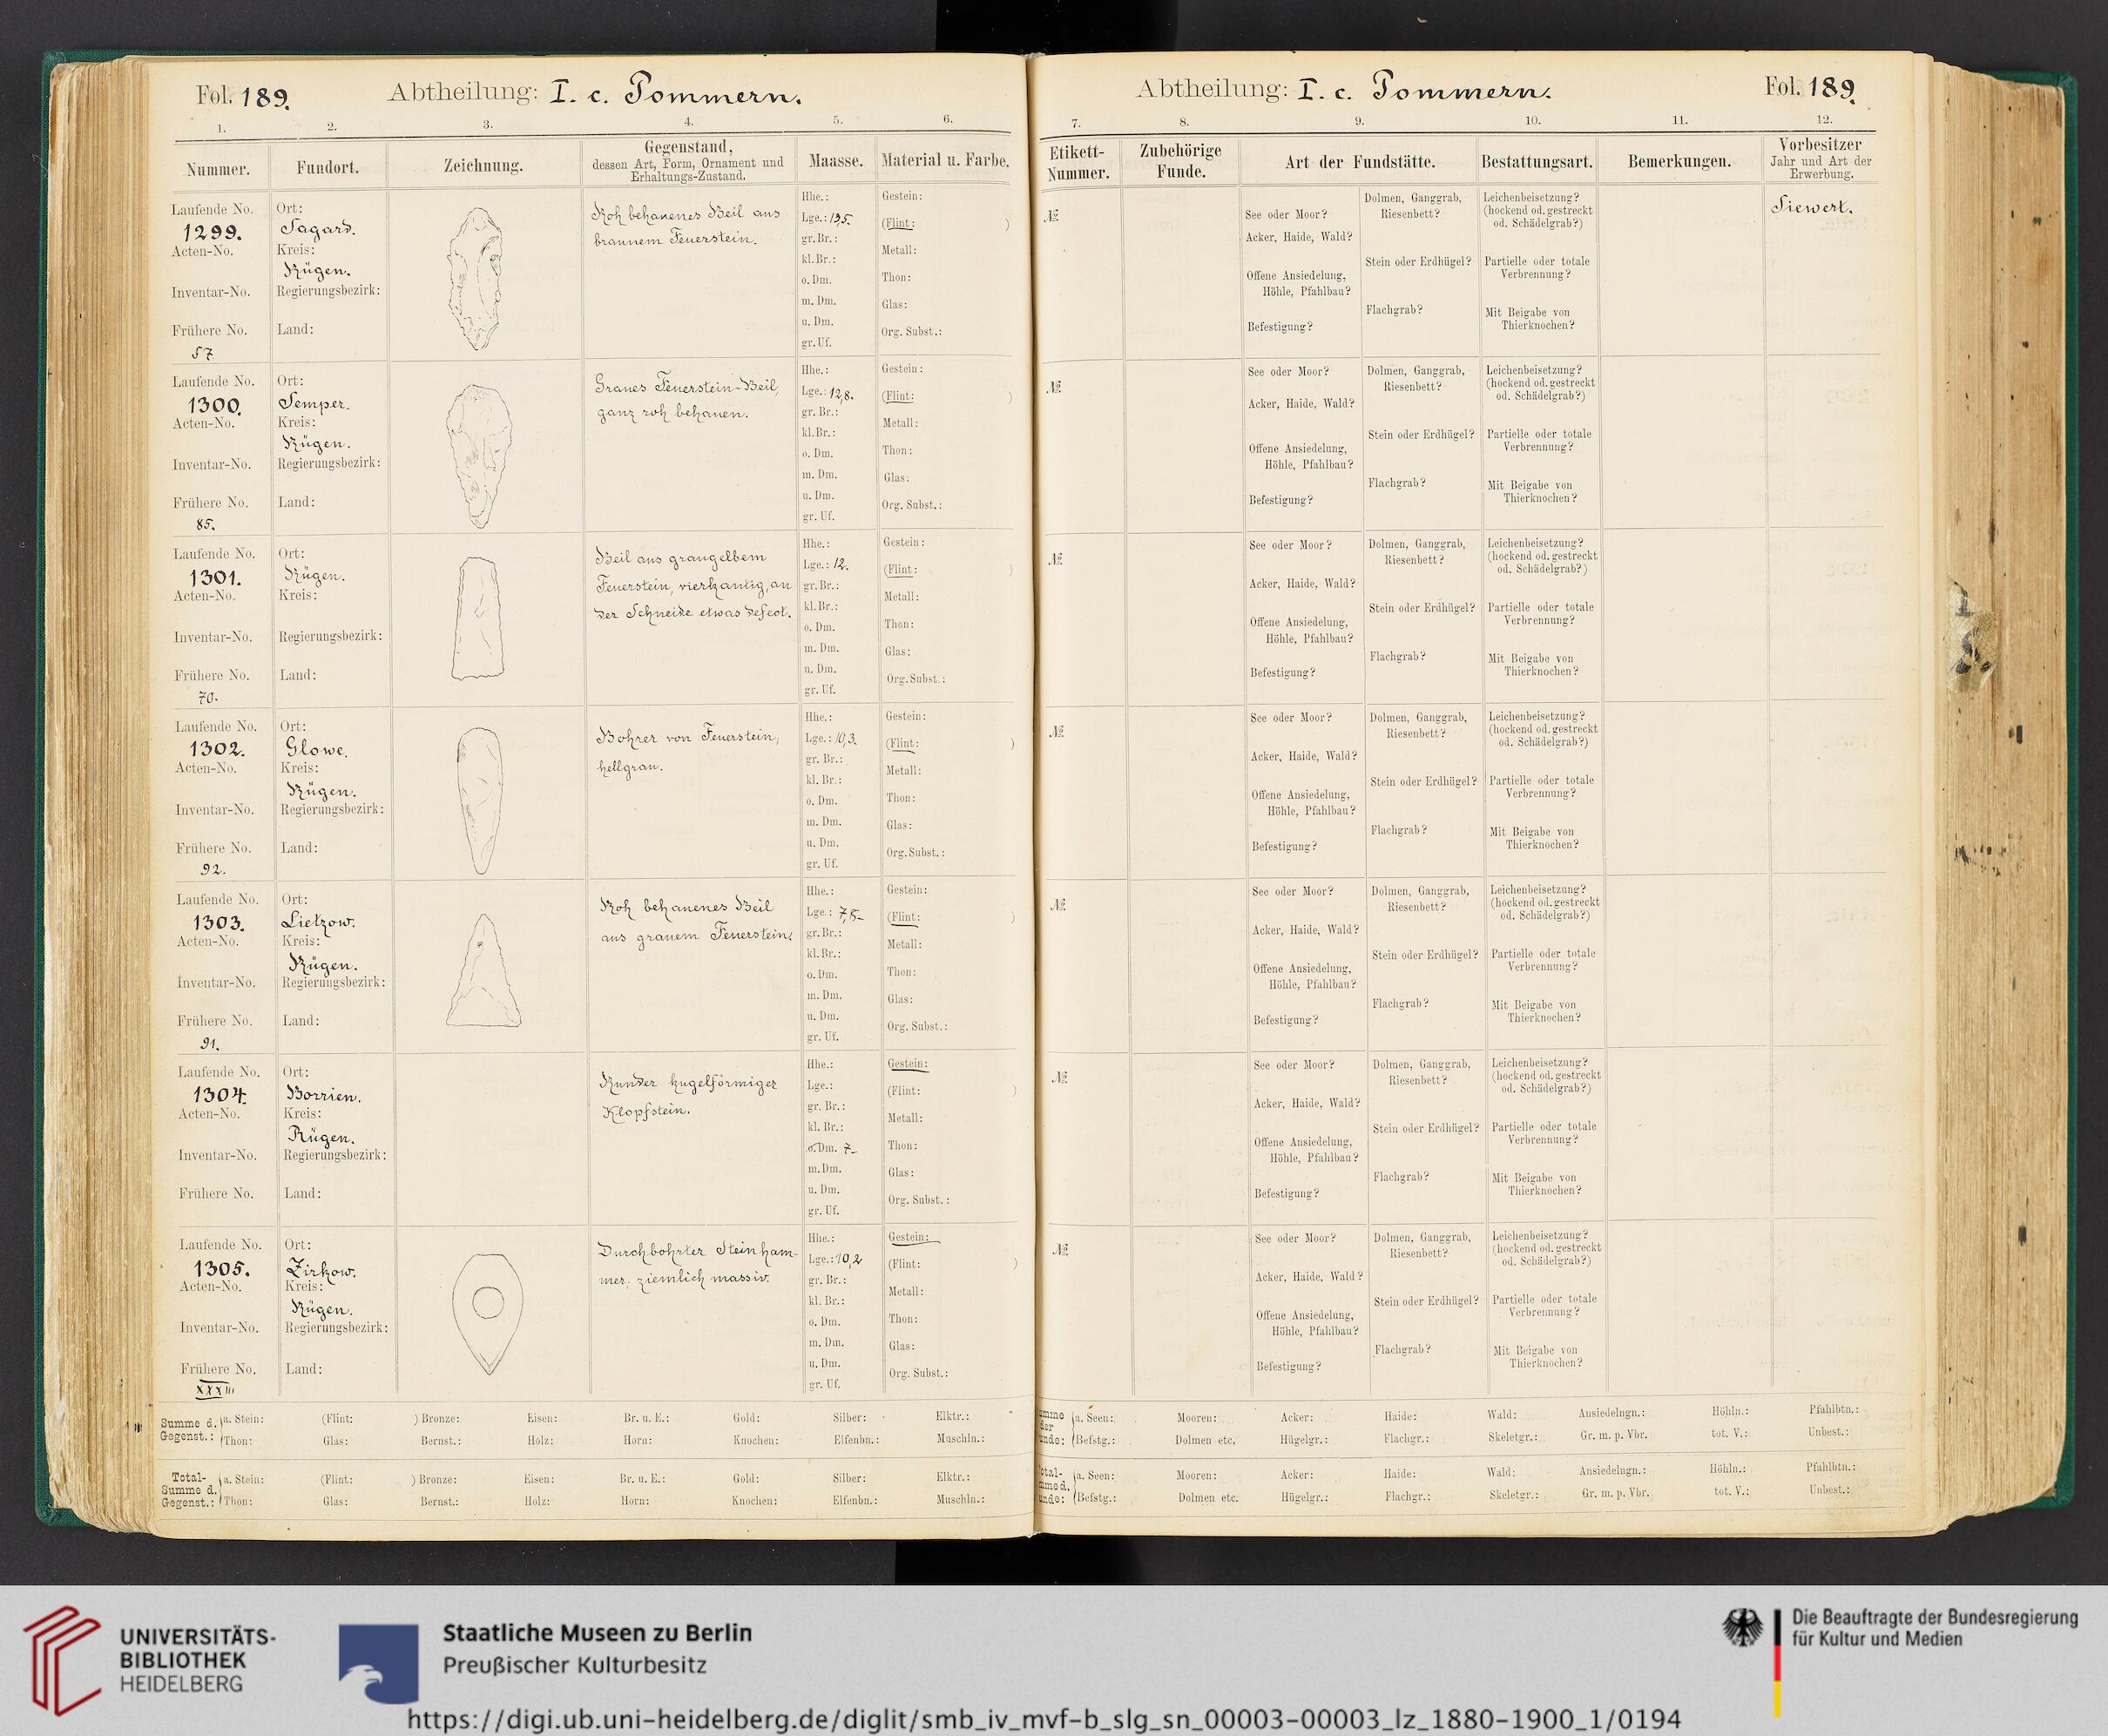 Fol. 189.
Abtheilung: I. c. Pommern.
1. 2. 3. 4. 5. 6.
Nummer. Fundort. Zeichnung. Gegenstand, dessen Art, Form, Ornament und Erhaltungs-Zustand. Maasse. Material u. Farbe.
Laufende No.
1299.
Acten-No.
Inventar-No.
Frühere No.
57
Ort:
Sagard.
Kreis:
Rügen.
Regierungsbezirk:
Land:
Roh behauenes Beil aus
braunem Feuerstein.
Hhe.:
Lge.: 19,5.
gr. Br.:
kl. Br.:
o. Dm.
m. Dm.
u. Dm.
gr. Uf.
Gestein:
(Flint: )
Metall:
Thon:
Glas:
Org. Subst.:
Laufende No.
1300.
Acten-No.
Inventar-No.
Frühere No.
85.
Ort:
Semper.
Kreis:
Rügen.
Regierungsbezirk:
Land:
Graues Feuerstein-Beil,
ganz roh behauen.
Hhe.:
Lge.: 12,8.
gr. Br.:
kl. Br.:
o. Dm.
m. Dm.
u. Dm.
gr. Uf.
Gestein:
(Flint: )
Metall:
Thon:
Glas:
Org. Subst.:
Laufende No.
1301.
Acten-No.
Inventar-No.
Frühere No.
70.
Ort:
Rügen.
Kreis:
Regierungsbezirk:
Land:
Beil aus graugelbem
Feuerstein, vierkantig, an
der Schneide etwas defect.
Hhe.:
Lge.: 12.
gr. Br.:
kl. Br.:
o. Dm.
m. Dm.
u. Dm.
gr. Uf.
Gestein:
(Flint: )
Metall:
Thon:
Glas:
Org. Subst.:
Laufende No.
1302.
Acten-No.
Inventar-No.
Frühere No.
92.
Ort:
Glowe.
Kreis:
Rügen.
Regierungsbezirk:
Land:
Bohrer von Feuerstein,
hellgrau.
Hhe.:
Lge.: 10,3.
gr. Br.:
kl. Br.:
o. Dm.
m. Dm.
u. Dm.
gr. Uf.
Gestein:
(Flint: )
Metall:
Thon:
Glas:
Org. Subst.:
Laufende No.
1303.
Acten-No.
Inventar-No.
Frühere No.
91.
Ort:
Lietzow.
Kreis:
Rügen.
Regierungsbezirk:
Land:
Roh behauenes Beil
aus grauem Feuerstein.
Hhe.:
Lge.:
gr. Br.:
kl. Br.:
o. Dm.
m. Dm.
u. Dm.
gr. Uf.
Gestein:
(Flint: )
Metall:
Thon:
Glas:
Org. Subst.:
Laufende No.
1304.
Acten-No.
Inventar-No.
Frühere No.
Ort:
Kreis:
Rügen.
Regierungsbezirk:
Land:
Runder kugelförmiger
Klopfstein.
Hhe.:
Lge.:
gr. Br.:
kl. Br.:
o. Dm. 7
m. Dm.
u. Dm.
gr. Uf.
Gestein:
(Flint: )
Metall:
Thon:
Glas:
Org. Subst.:
Laufende No.
1305.
Acten-No.
Inventar-No.
Frühere No.
XXXIII
Ort:
Zirkow.
Kreis:
Rügen.
Regierungsbezirk:
Land:
Durchbohrter Steinham-
mer, ziemlich massiv.
Hhe.:
Lge.: 10,2
gr. Br.:
kl. Br.:
o. Dm.
m. Dm.
u. Dm.
gr. Uf.
Gestein:
(Flint: )
Metall:
Thon:
Glas:
Org. Subst.:
Summe d. Gegenst.: a. Stein: (Flint: ) Bronze: Eisen: Br. u. E.: Gold: Silber: Elktr.:
Thon: Glas: Bernst.: Holz: Horn: Knochen: Elfenbn.: Muschln.:
Total-Summe d. Gegenst.: a. Stein: (Flint: ) Bronze: Eisen: Br. u. E.: Gold: Silber: Elktr.:
Thon: Glas: Bernst.: Holz: Horn: Knochen: Elfenbn.: Muschln.:
Abtheilung: I. c. Pommern.
Fol. 189.
7. 8. 9. 10. 11. 12.
Etikett-Nummer. Zubehörige Funde. Art der Fundstätte. Bestattungsart. Bemerkungen. Vorbesitzer Jahr und Art der Erwerbung.
№
See oder Moor?
Acker, Haide, Wald?
Offene Ansiedelung,
Höhle, Pfahlbau?
Befestigung?
Dolmen, Ganggrab,
Riesenbett?
Stein oder Erdhügel?
Flachgrab?
Leichenbeisetzung?
(hockend od. gestreckt
od. Schädelgrab?)
Partielle oder totale
Verbrennung?
Mit Beigabe von
Thierknochen?
Siewert.
№
See oder Moor?
Acker, Haide, Wald?
Offene Ansiedelung,
Höhle, Pfahlbau?
Befestigung?
Dolmen, Ganggrab,
Riesenbett?
Stein oder Erdhügel?
Flachgrab?
Leichenbeisetzung?
(hockend od. gestreckt
od. Schädelgrab?)
Partielle oder totale
Verbrennung?
Mit Beigabe von
Thierknochen?
№
See oder Moor?
Acker, Haide, Wald?
Offene Ansiedelung,
Höhle, Pfahlbau?
Befestigung?
Dolmen, Ganggrab,
Riesenbett?
Stein oder Erdhügel?
Flachgrab?
Leichenbeisetzung?
(hockend od. gestreckt
od. Schädelgrab?)
Partielle oder totale
Verbrennung?
Mit Beigabe von
Thierknochen?
№
See oder Moor?
Acker, Haide, Wald?
Offene Ansiedelung,
Höhle, Pfahlbau?
Befestigung?
Dolmen, Ganggrab,
Riesenbett?
Stein oder Erdhügel?
Flachgrab?
Leichenbeisetzung?
(hockend od. gestreckt
od. Schädelgrab?)
Partielle oder totale
Verbrennung?
Mit Beigabe von
Thierknochen?
№
See oder Moor?
Acker, Haide, Wald?
Offene Ansiedelung,
Höhle, Pfahlbau?
Befestigung?
Dolmen, Ganggrab,
Riesenbett?
Stein oder Erdhügel?
Flachgrab?
Leichenbeisetzung?
(hockend od. gestreckt
od. Schädelgrab?)
Partielle oder totale
Verbrennung?
Mit Beigabe von
Thierknochen?
№
See oder Moor?
Acker, Haide, Wald?
Offene Ansiedelung,
Höhle, Pfahlbau?
Befestigung?
Dolmen, Ganggrab,
Riesenbett?
Stein oder Erdhügel?
Flachgrab?
Leichenbeisetzung?
(hockend od. gestreckt
od. Schädelgrab?)
Partielle oder totale
Verbrennung?
Mit Beigabe von
Thierknochen?
№
See oder Moor?
Acker, Haide, Wald?
Offene Ansiedelung,
Höhle, Pfahlbau?
Befestigung?
Dolmen, Ganggrab,
Riesenbett?
Stein oder Erdhügel?
Flachgrab?
Leichenbeisetzung?
(hockend od. gestreckt
od. Schädelgrab?)
Partielle oder totale
Verbrennung?
Mit Beigabe von
Thierknochen?
a. Seen: Mooren: Acker: Haide: Wald: Ansiedelngn.: Höhln.: Pfahlbtn.:
Befstg.: Dolmen etc. Hügelgr.: Flachgr.: Skeletgr.: Gr. m. p. Vbr. tot. V.: Unbest.:
a. Seen: Mooren: Acker: Haide: Wald: Ansiedelngn.: Höhln.: Pfahlbtn.:
Befstg.: Dolmen etc. Hügelgr.: Flachgr.: Skeletgr.: Gr. m. p. Vbr. tot. V.: Unbest.:
UNIVERSITÄTS-
BIBLIOTHEK
HEIDELBERG
Staatliche Museen zu Berlin
Preußischer Kulturbesitz
Die Beauftragte der Bundesregierung
für Kultur und Medien
https://digi.ub.uni-heidelberg.de/diglit/smb_iv_mvf-b_slg_sn_00003-00003_lz_1880-1900_1/0194